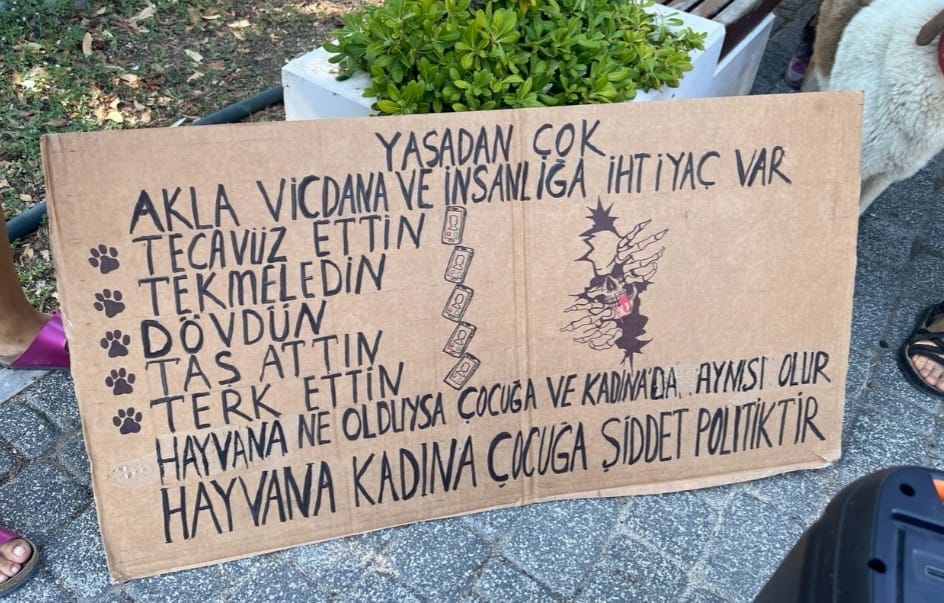 YAŞADAN ÇOK
AKLA VİCDANA VE İNSANLIĞA İHTİYAÇ VAR
TECAVÜZ ETTİN
TEKMELEDİN
DÖVDÜN
TAŞ ATTIN
TERK ETTİN
HAYVANA NE OLDUYSA ÇOCUĞA VE KADINA'DA AYNISI OLUR
HAYVANA KADINA ÇOCUĞA ŞİDDET POLİTİKTİR